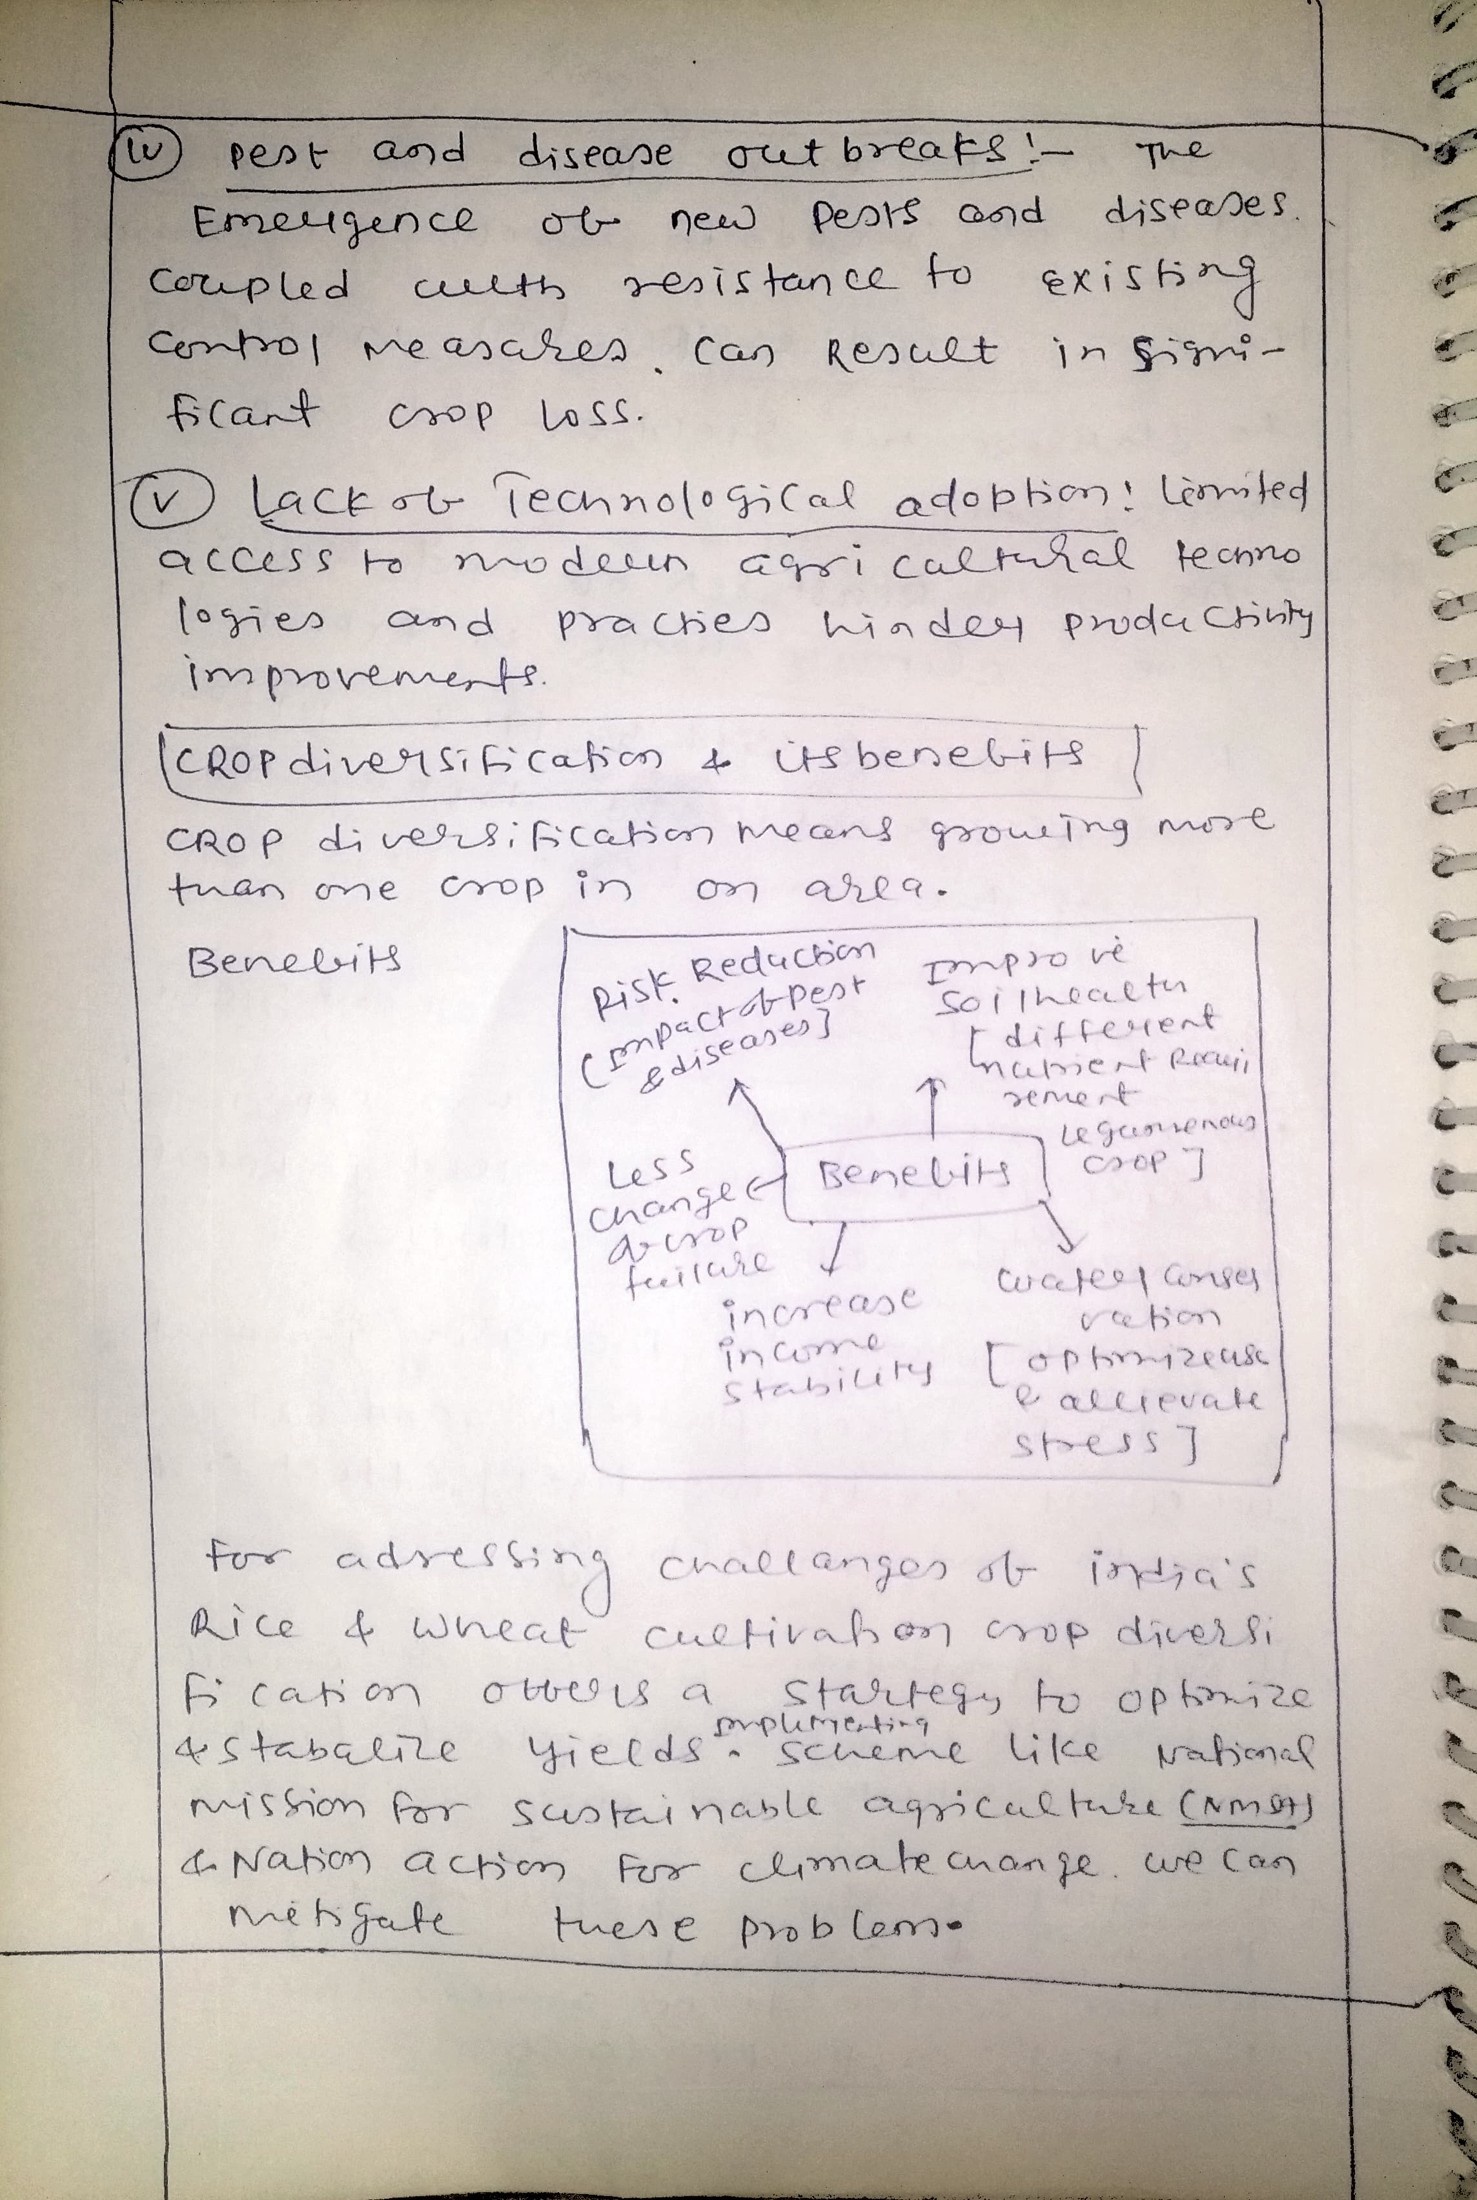 (iv) Pest and disease outbreaks:- The
Emergence of new Pests and diseases.
coupled with resistance to existing
control measures. can Result in signi-
ficant crop loss.
(v) Lack of Technological adoption: Limited
access to modern agricultural techno
logies and practies hinder productivity
improvements.
CROP diversification & its benefits
CROP diversification means growing more
than one crop in an area.
Benefits
Risk Reduction
[Impact of pest
& diseases]
Improve
soil health
[different
nutrient Requi
rement
Legumenous
crop]
Benefits
Less
change
of crop
failure
increase
income
stability
water conser
vation
[optimize use
& allievate
stress]
For adressing challanges of india's
Rice & wheat cultivation crop diversi
fication offers a startegy to optimize
& stabalize yields. implementing scheme like National
mission for sustainable agriculture (NMSA)
& Nation action For climate change. we can
mitigate these problem.